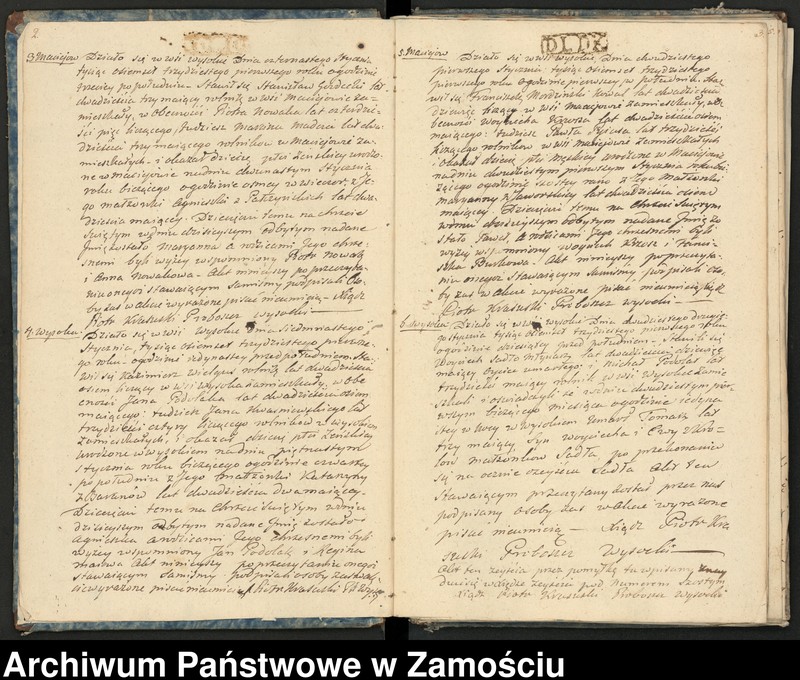 2
3. Maciejów Działo się w wsi Wysokie Dnia czternastego Stycznia
tysiąc osiemset trzydziestego pierwszego roku o godzinie
trzeciej po południu. Stawił się Stanisław lat
dwadzieścia trzy maiący rolnik w wsi Maciejowie za-
mieszkały, w obecności Piotra Nowaka lat czterdzie-
ści pięć liczącego, tudzież Marcina lat dwa-
dzieścia trzy maiącego rolników w Maciejowie za-
mieszkałych - i okazał dziecię płci żeńskiey urodzo-
ne w Maciejowie na dniu dwunastym Stycznia
roku bieżącego o godzinie osmey w wieczor, z Je-
go małżonki Agnieszki z lat dwa-
dzieścia maiącey. Dziecięciu temu na chrzcie
Swiętym w dniu dzisieyszym odbytym nadane
Imię zostało Maryanna a rodzicami Jego chrze-
snemi byli wyżey wspomniony Piotr Nowak
i Anna Nowakowa. Akt ninieyszy po przeczyta-
niu onegoż stawaiącym Samiśmy podpisali Oso-
by zaś w akcie wyrażone pisać nieumieią - Xiądz
Piotr Krasuski Proboszcz Wysocki
4. Wysokie. Działo się w wsi Wysokie Dnia siedmnastego
Stycznia, tysiąc osiemset trzydziestego pierwsze-
go roku, o godzinie jedynastey przed południem. Sta-
wił się Kazimierz rolnik lat dwadzieścia
osiem liczący w wsi Wysokie zamieszkały, w obe-
cności Jana Podolaka lat dwadzieścia osiem
maiącego: tudzież Jana lat
trzydzieści cztery liczącego rolników z Wysokiem
zamieszkałych, i okazał dziecię płci żeńskiey
urodzone w Wysokiem na dniu piętnastym
Stycznia roku bieżącego o godzinie czwartey
po południu z Jego małżonki Katarzyny
z lat dwadzieścia dwa maiącey.
Dziecięciu temu na Chrzcie Swiętym w dniu
dzisieyszym odbytym nadane Imię zostało
Agnieszka a rodzicami Jego chrzesnemi byli
wyżey wspomniony Jan Podolak i Regina
Akt ninieyszy po przeczytaniu onegoż
stawaiącym Samiśmy podpisali osoby zaś w ak-
cie wyrażone pisać nieumieią X Piotr Krasuski Pb Wys.
5. Maciejów Działo się w wsi Wysokie, Dnia dwudziestego
pierwszego Stycznia tysiąc osiemset trzydziestego
pierwszego roku o godzinie pierwszey po południu. Sta-
wił się Franciszek Kowal lat dwadzieścia
dziewięć liczący w wsi Maciejowie zamieszkały, w o-
becności Woyciecha lat dwadzieścia osiem
maiącego: tudzież Pawła lat trzydzieści
liczącego rolników w wsi Maciejowie zamieszkałych
i okazał dziecię płci męzkiey urodzone w Maciejowie
na dniu dwudziestym pierwszym Stycznia roku bie-
żącego o godzinie szostey rano z Jego małżonki
Maryanny z lat dwadzieścia osiem
maiącey. Dziecięciu temu na Chrzcie Swiętym
w dniu dzisieyszym odbytym nadane Imię zo-
stało Paweł, a rodzicami Jego chrzestnemi byli
wyżey wspomniony Woyciech i Franci-
szka Akt ninieyszy po przeczyta-
niu onegoż stawaiącym Samiśmy podpisali Oso-
by zaś w akcie wyrażone pisać nieumieią Xiądz
Piotr Krasuski Proboszcz Wysocki
6. Wysokie Działo się w wsi Wysokie Dnia dwudziestego drugie-
go Stycznia tysiąc osiemset trzydziestego pierwszego roku
o godzinie dziesiątey przed południem. Stawili się
Woyciech Sadło lat dwadzieścia dziewięć
maiący oyciec zmarłego i Michał lat
trzydzieści maiący rolnik w wsi Wysokie zamie-
szkali i oświadczyli że w dniu dwudziestym pier-
wszym bieżącego miesiąca o godzinie jedyna-
stey w nocy w Wysokiem umarł Tomasz lat
trzy maiący Syn Woyciecha i Ewy z
małżonków Sadła po przekonaniu
się na ocznie o zeyściu Sadła Akt ten
Stawaiącym przeczytany został przez nas
podpisany osoby zaś w akcie wyrażone
pisać nieumieią - Xiądz Piotr Kra
suski Proboszcz Wysocki
Akt ten zeyścia przez pomyłkę tu wpisany
w księdze zeyściów pod Numerem Szostym
Xiądz Piotr Krasuski Proboszcz Wysocki
Archiwum Państwowe w Zamościu